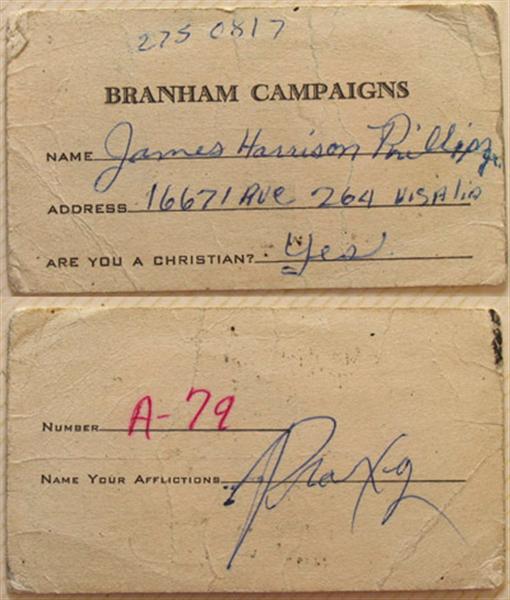 275 0817
BRANHAM CAMPAIGNS
NAME James Harrison Phillips Jr.
ADDRESS 16671 AVE 264 VISALIA
ARE YOU A CHRISTIAN? Yes
NUMBER A-79
NAME YOUR AFFLICTIONS